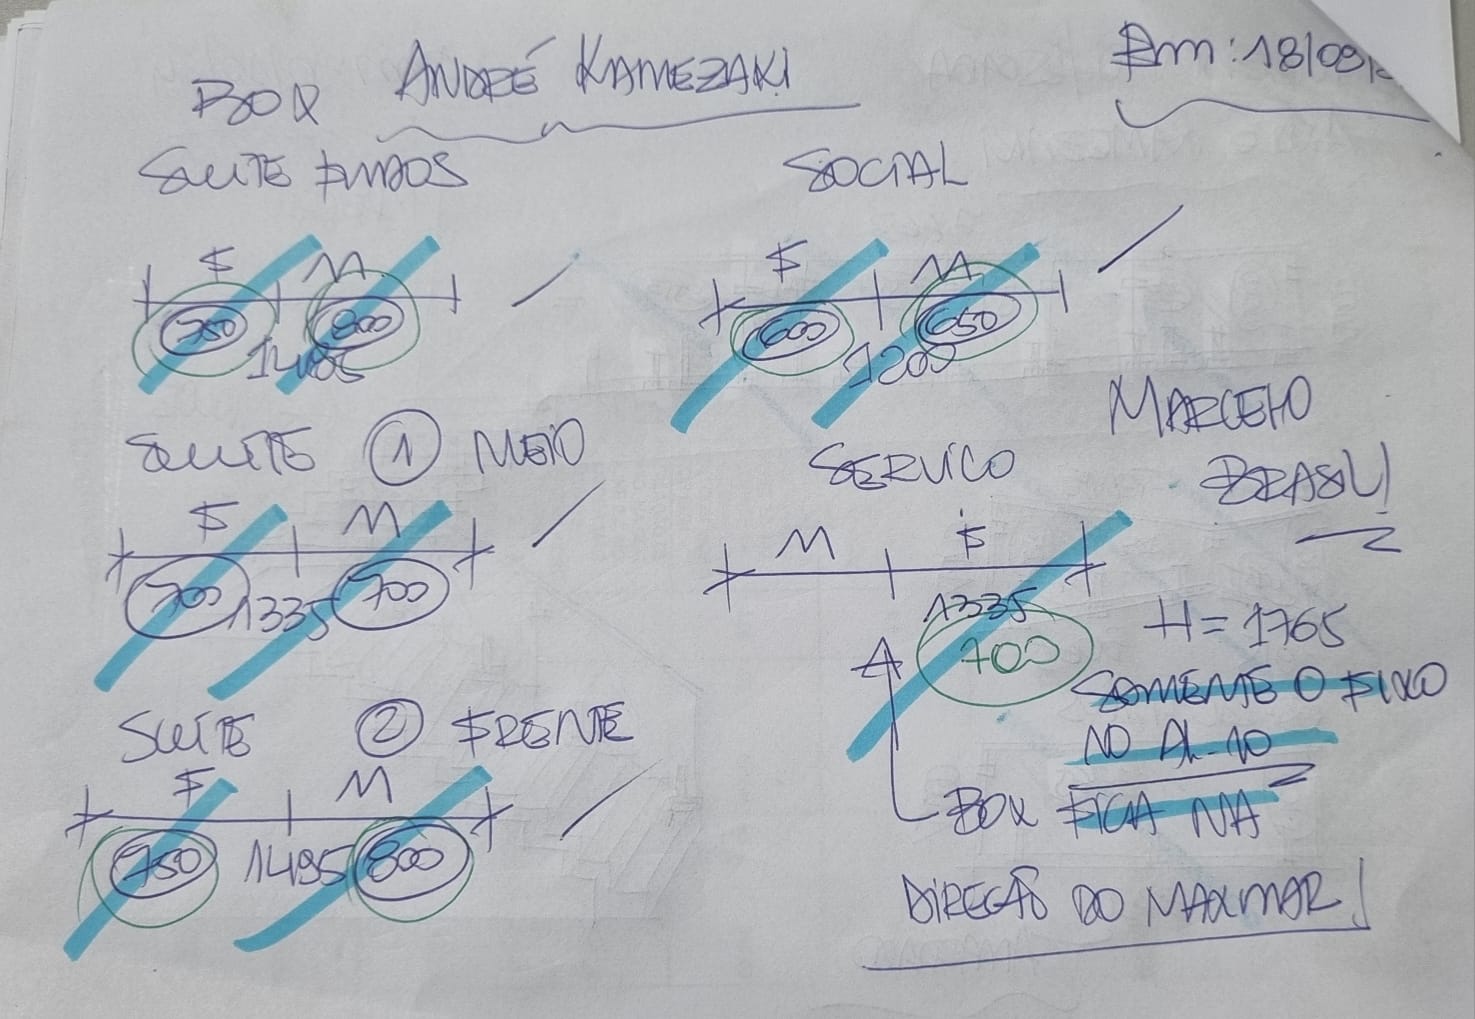 BOX ANDRÉ KAMEZAKI
Em: 18/09/
SUITE FUNDOS
F M
750 800
1495
SOCIAL
F M
600 650
1200
SUITE 1 MEIO
F M
700 1335 700
SERVICO
M F
1335
700
MARCELO
BRASIL!
H = 1765
SOMENTE O FIXO
NO AL-10
BOX FICA NA
DIREÇÃO DO MAXIMAR!
SUITE 2 FRENTE
F M
750 1495 800